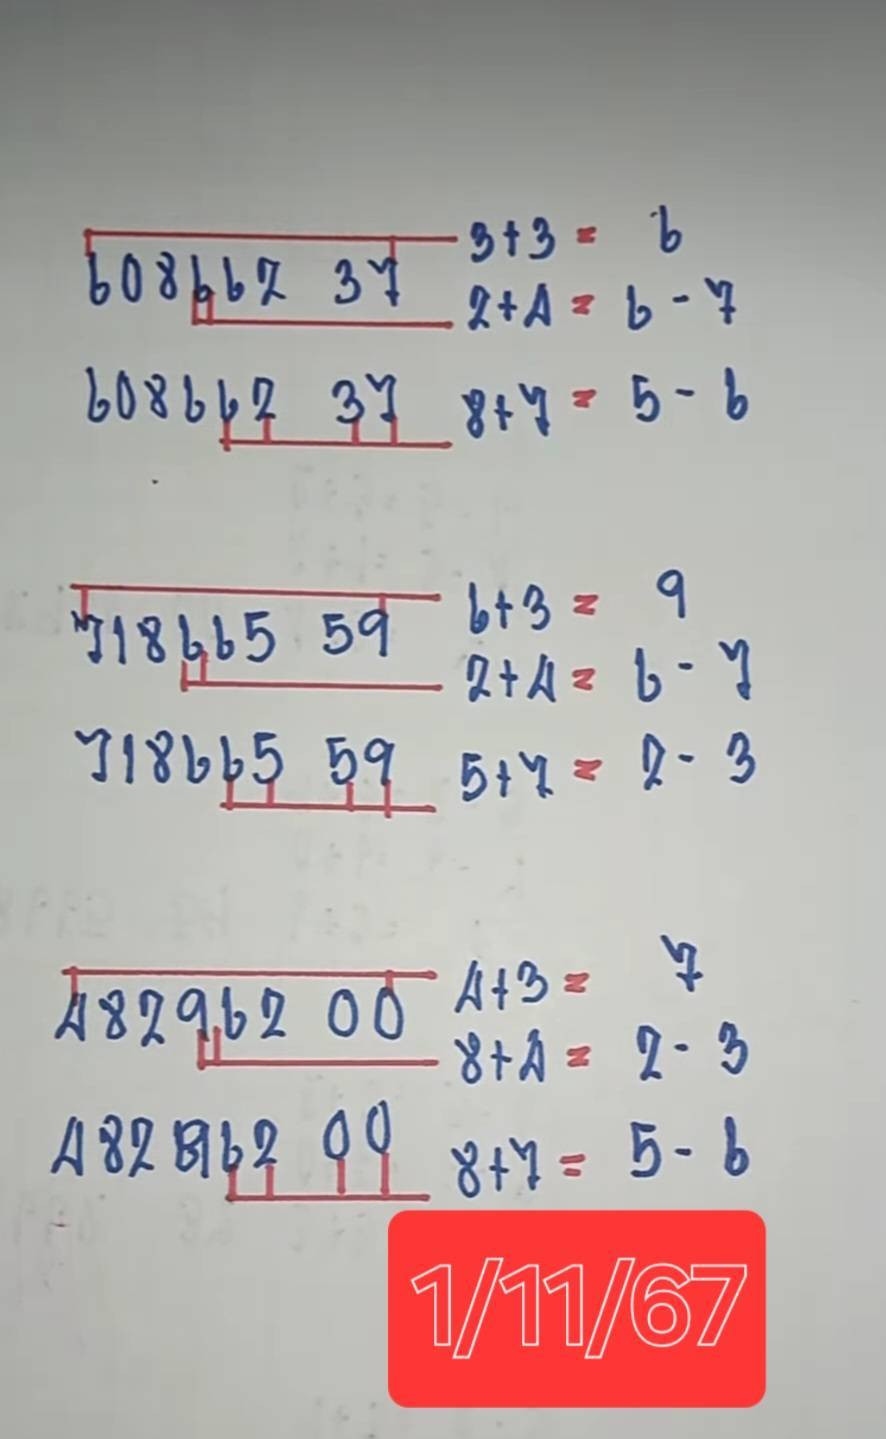 3+3 = 6
608662 37
2+4 = 6-7
608662 37 8+7 = 5-6
6+3 = 9
718665 59
2+4 = 6-7
718665 59 5+7 = 2-3
4+3 = 7
482962 00
8+4 = 2-3
482 962 00 8+7 = 5-6
1/11/67